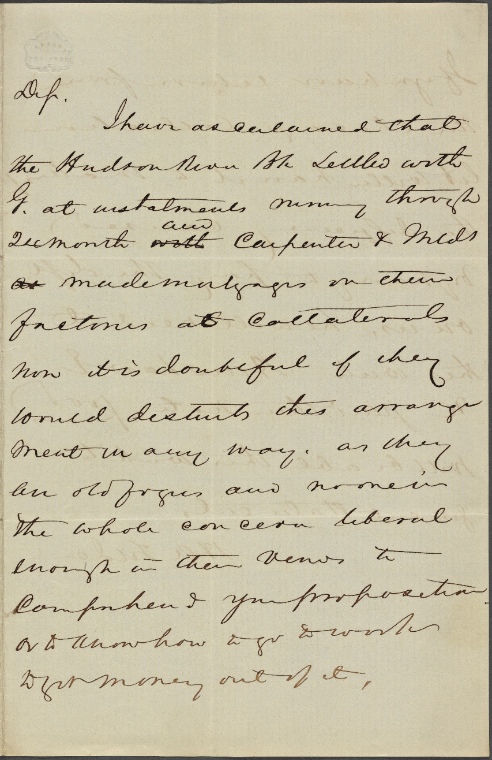 I have ascertained that
the Hudson River Bk Settled with
G. at instalments running through
24 months and with Carpenter &
as made mortgages on their
factories as Collaterals
now it is doubtful if they
would disturb this arrange
ment in any way. as they
are old fogies and no one in
the whole concern liberal
enough in their views to
Comprehend your proposition
or to know how to go to work
to get money out of it,